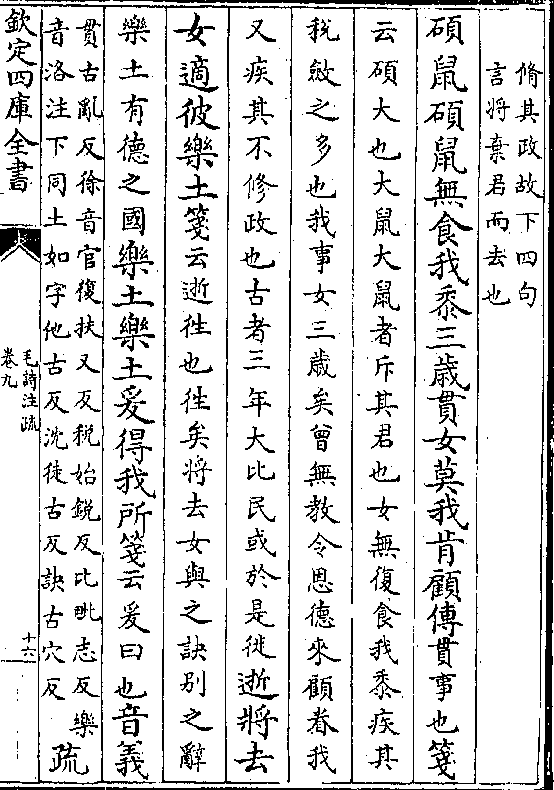 脩其政故下四句
言將棄君而去也
碩鼠碩鼠無食我黍三歲貫女莫我肯顧傳貫事也箋
云碩大也大鼠大鼠者斥其君也女無復食我黍疾其
稅斂之多也我事女三歲矣曾無教令恩德來顧眷我
又疾其不修政也古者三年大比民或於是徙逝將去
女適彼樂土箋云逝徃也徃矣將去女與之訣别之辭
樂土有德之國樂土樂土爰得我所箋云爰曰也音義
貫古亂反徐音官復扶又反稅始鋭反比毗志反樂
音洛注下同土如字他古反沈徒古反訣古穴反
疏
欽定四庫全書
毛詩注疏
卷九
十六